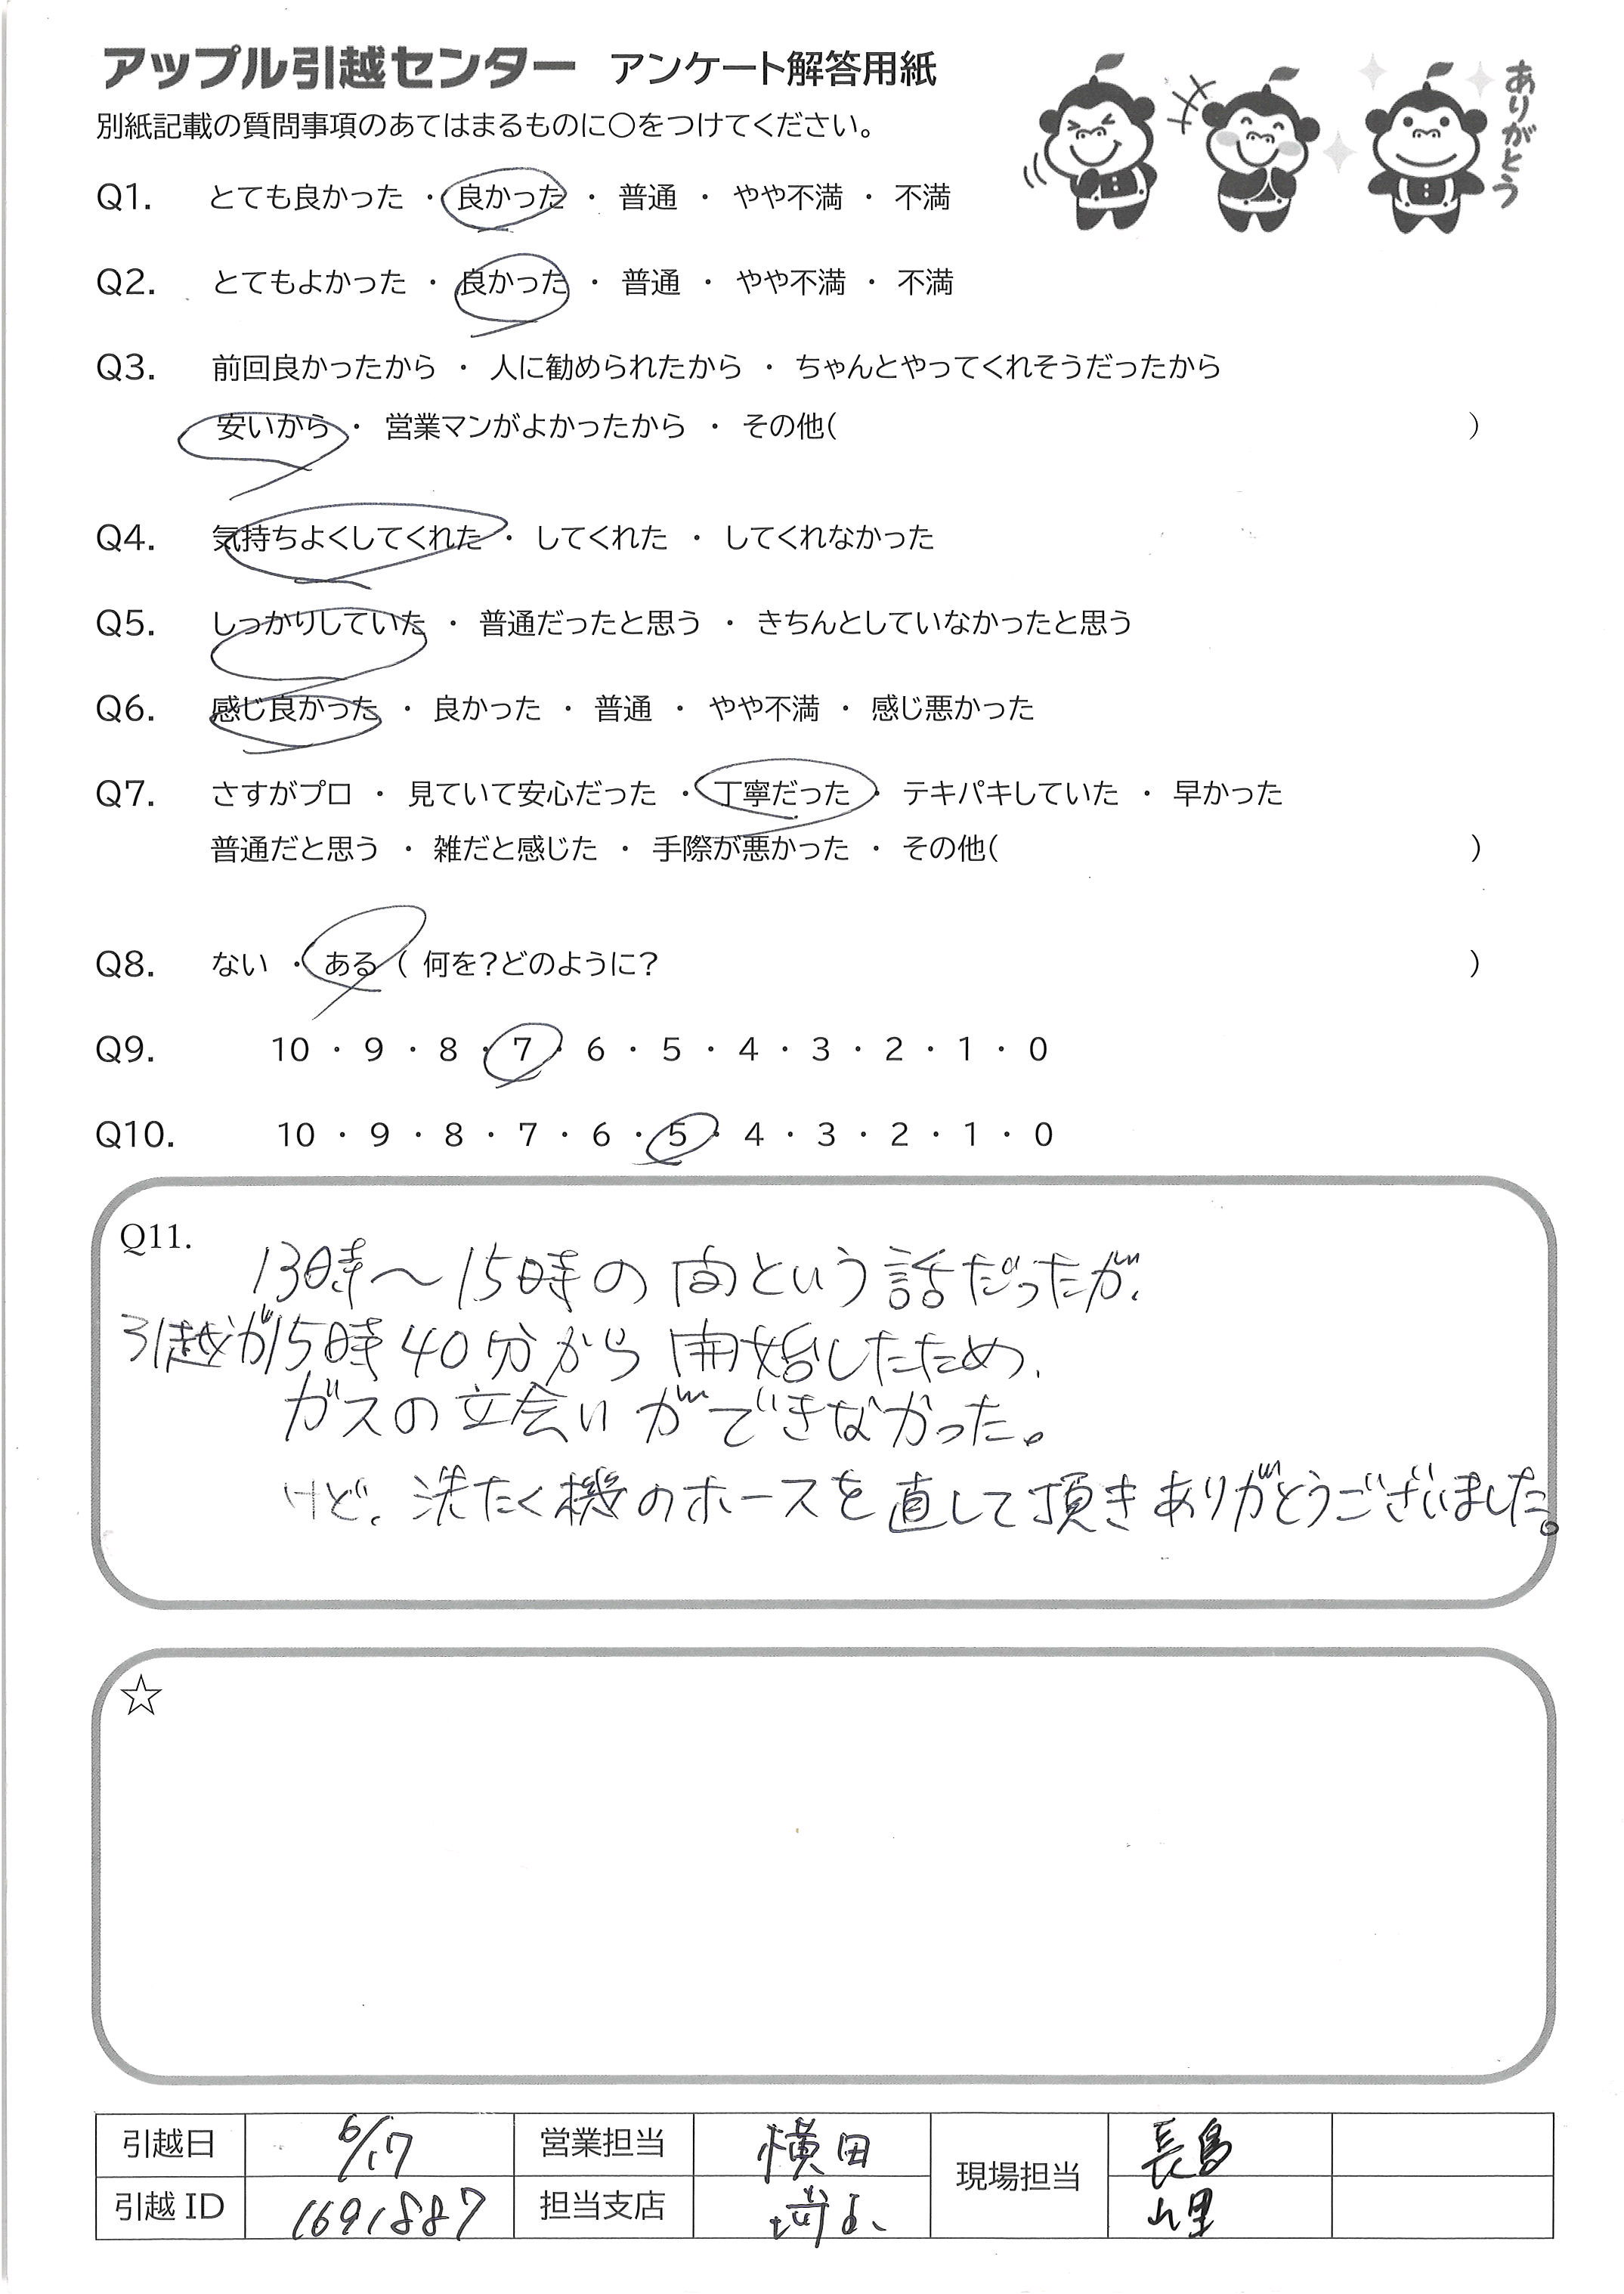 アップル引越センター アンケート解答用紙
ありがとう
別紙記載の質問事項のあてはまるものに○をつけてください。
Q1. とても良かった ・ 良かった ・ 普通 ・ やや不満 ・ 不満
Q2. とてもよかった ・ 良かった ・ 普通 ・ やや不満 ・ 不満
Q3. 前回良かったから ・ 人に勧められたから ・ ちゃんとやってくれそうだったから
安いから ・ 営業マンがよかったから ・ その他( )
Q4. 気持ちよくしてくれた ・ してくれた ・ してくれなかった
Q5. しっかりしていた ・ 普通だったと思う ・ きちんとしていなかったと思う
Q6. 感じ良かった ・ 良かった ・ 普通 ・ やや不満 ・ 感じ悪かった
Q7. さすがプロ ・ 見ていて安心だった ・ 丁寧だった ・ テキパキしていた ・ 早かった
普通だと思う ・ 雑だと感じた ・ 手際が悪かった ・ その他( )
Q8. ない ・ ある ( 何を?どのように? )
Q9. 10 ・ 9 ・ 8 ・ 7 ・ 6 ・ 5 ・ 4 ・ 3 ・ 2 ・ 1 ・ 0
Q10. 10 ・ 9 ・ 8 ・ 7 ・ 6 ・ 5 ・ 4 ・ 3 ・ 2 ・ 1 ・ 0
Q11.
13時〜15時の間という話だったが、
引越が15時40分から開始したため、
ガスの立会いができなかった。
けど、洗たく機のホースを直して頂きありがとうございました。
☆
引越日 6/17 営業担当 横田 現場担当 長島
引越ID 1691887 担当支店